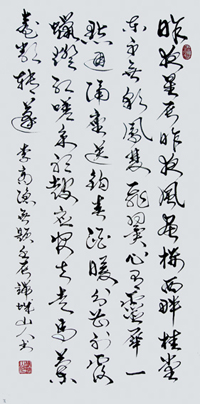 昨夜星辰昨夜風畫樓西畔桂堂
東身無彩鳳雙飛翼心有靈犀一
點通隔座送鉤春酒暖分曹射覆
蠟燈紅嗟余聽鼓應官去走馬蘭
臺類轉蓬 李商隱無題